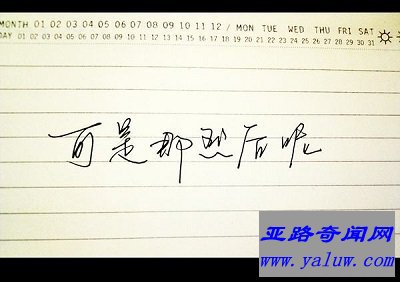 MONTH 01 02 03 04 05 06 07 08 09 10 11 12 / MON TUE WED THU FRI SAT
DAY 01 02 03 04 05 06 07 08 09 10 11 12 13 14 15 16 17 18 19 20 21 22 23 24 25 26 27 28 29 30 31
可是那然后呢
亚路奇闻网
www.yaluw.com